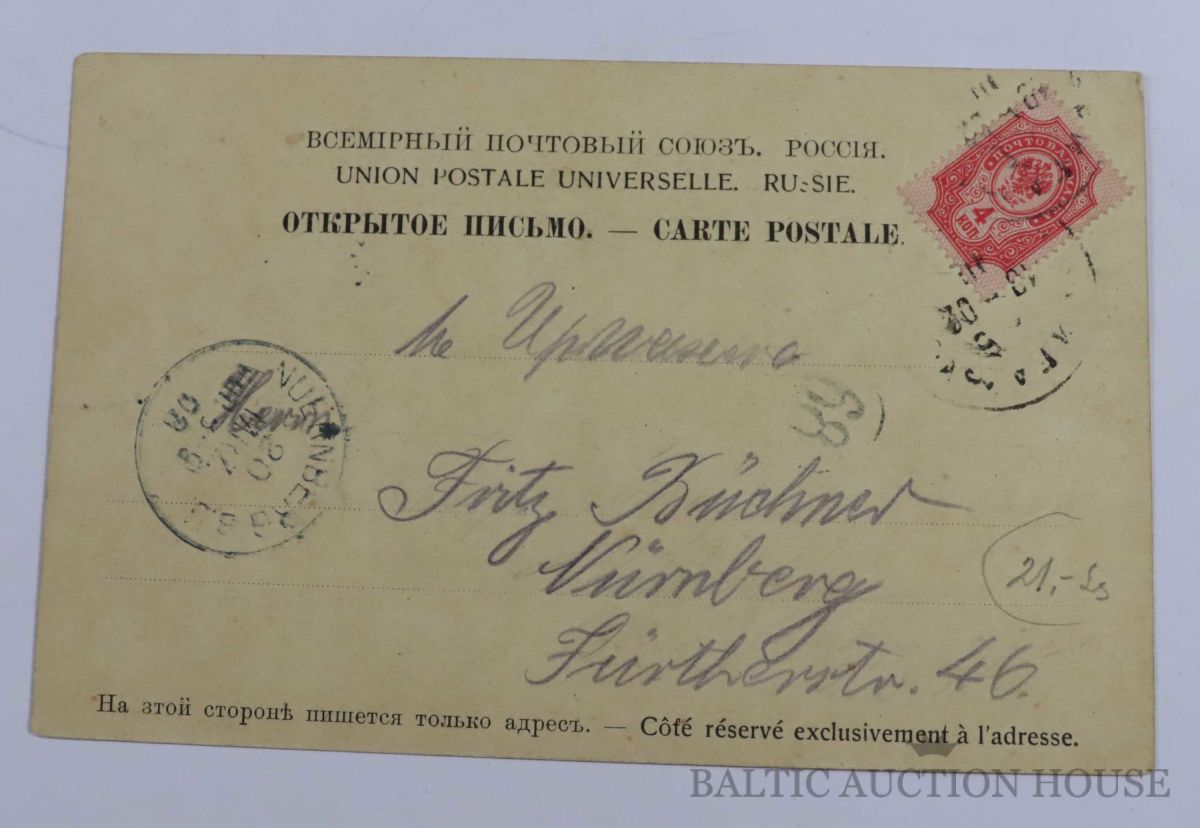 ВСЕМІРНЫЙ ПОЧТОВЫЙ СОЮЗЪ. РОССІЯ.
UNION POSTALE UNIVERSELLE. RUSSIE.
ОТКРЫТОЕ ПИСЬМО. — CARTE POSTALE.
ПОЧТОВАЯ
4
КОП
02
NUERNBERG
Herrn
59
Fritz Büchner
Nürnberg
21,- Ls
Fürtherstr. 46.
На этой сторонѣ пишется только адресъ. — Côté réservé exclusivement à l'adresse.
BALTIC AUCTION HOUSE